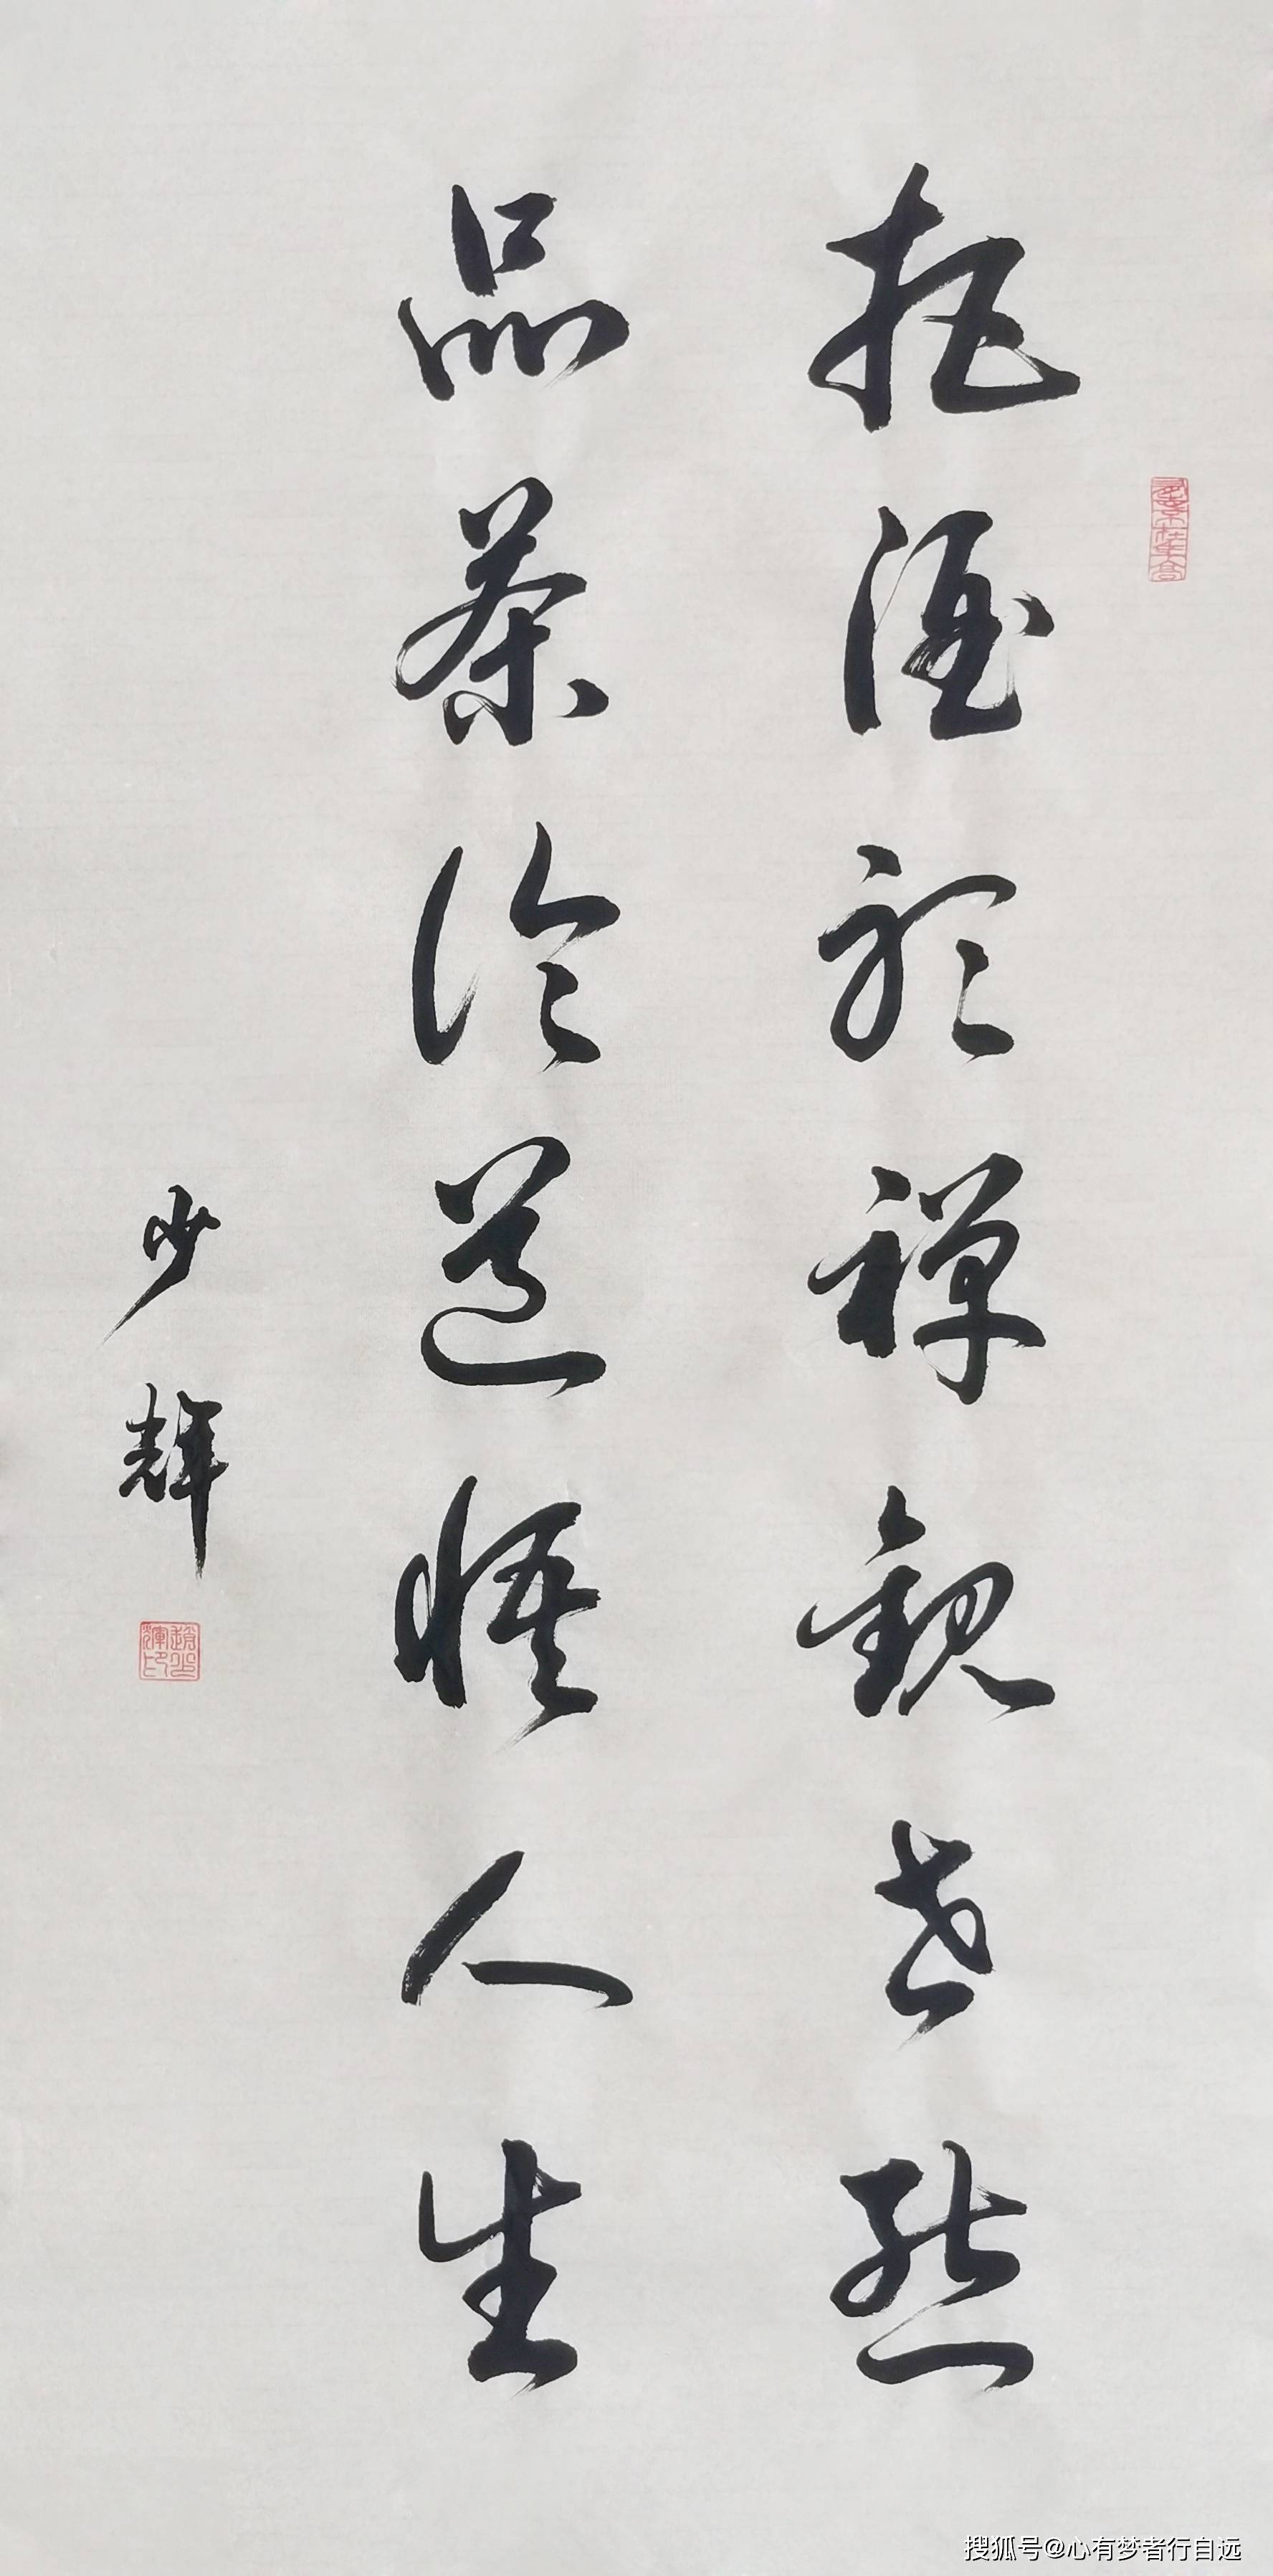 把酒聆禅观世态
品茶论道悟人生
少辉
搜狐号@心有梦者行自远